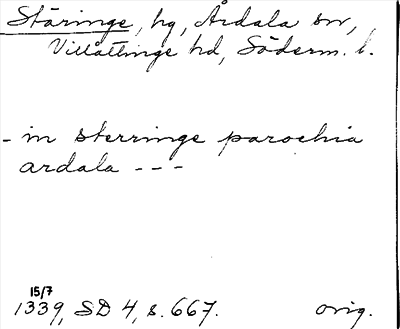 Stäringe, hg, Årdala sn,
Villåttinge hd, Söderm. l.
- in sterringe parochia
ardala - - -
15/7
1339, SD 4, s. 667. orig.